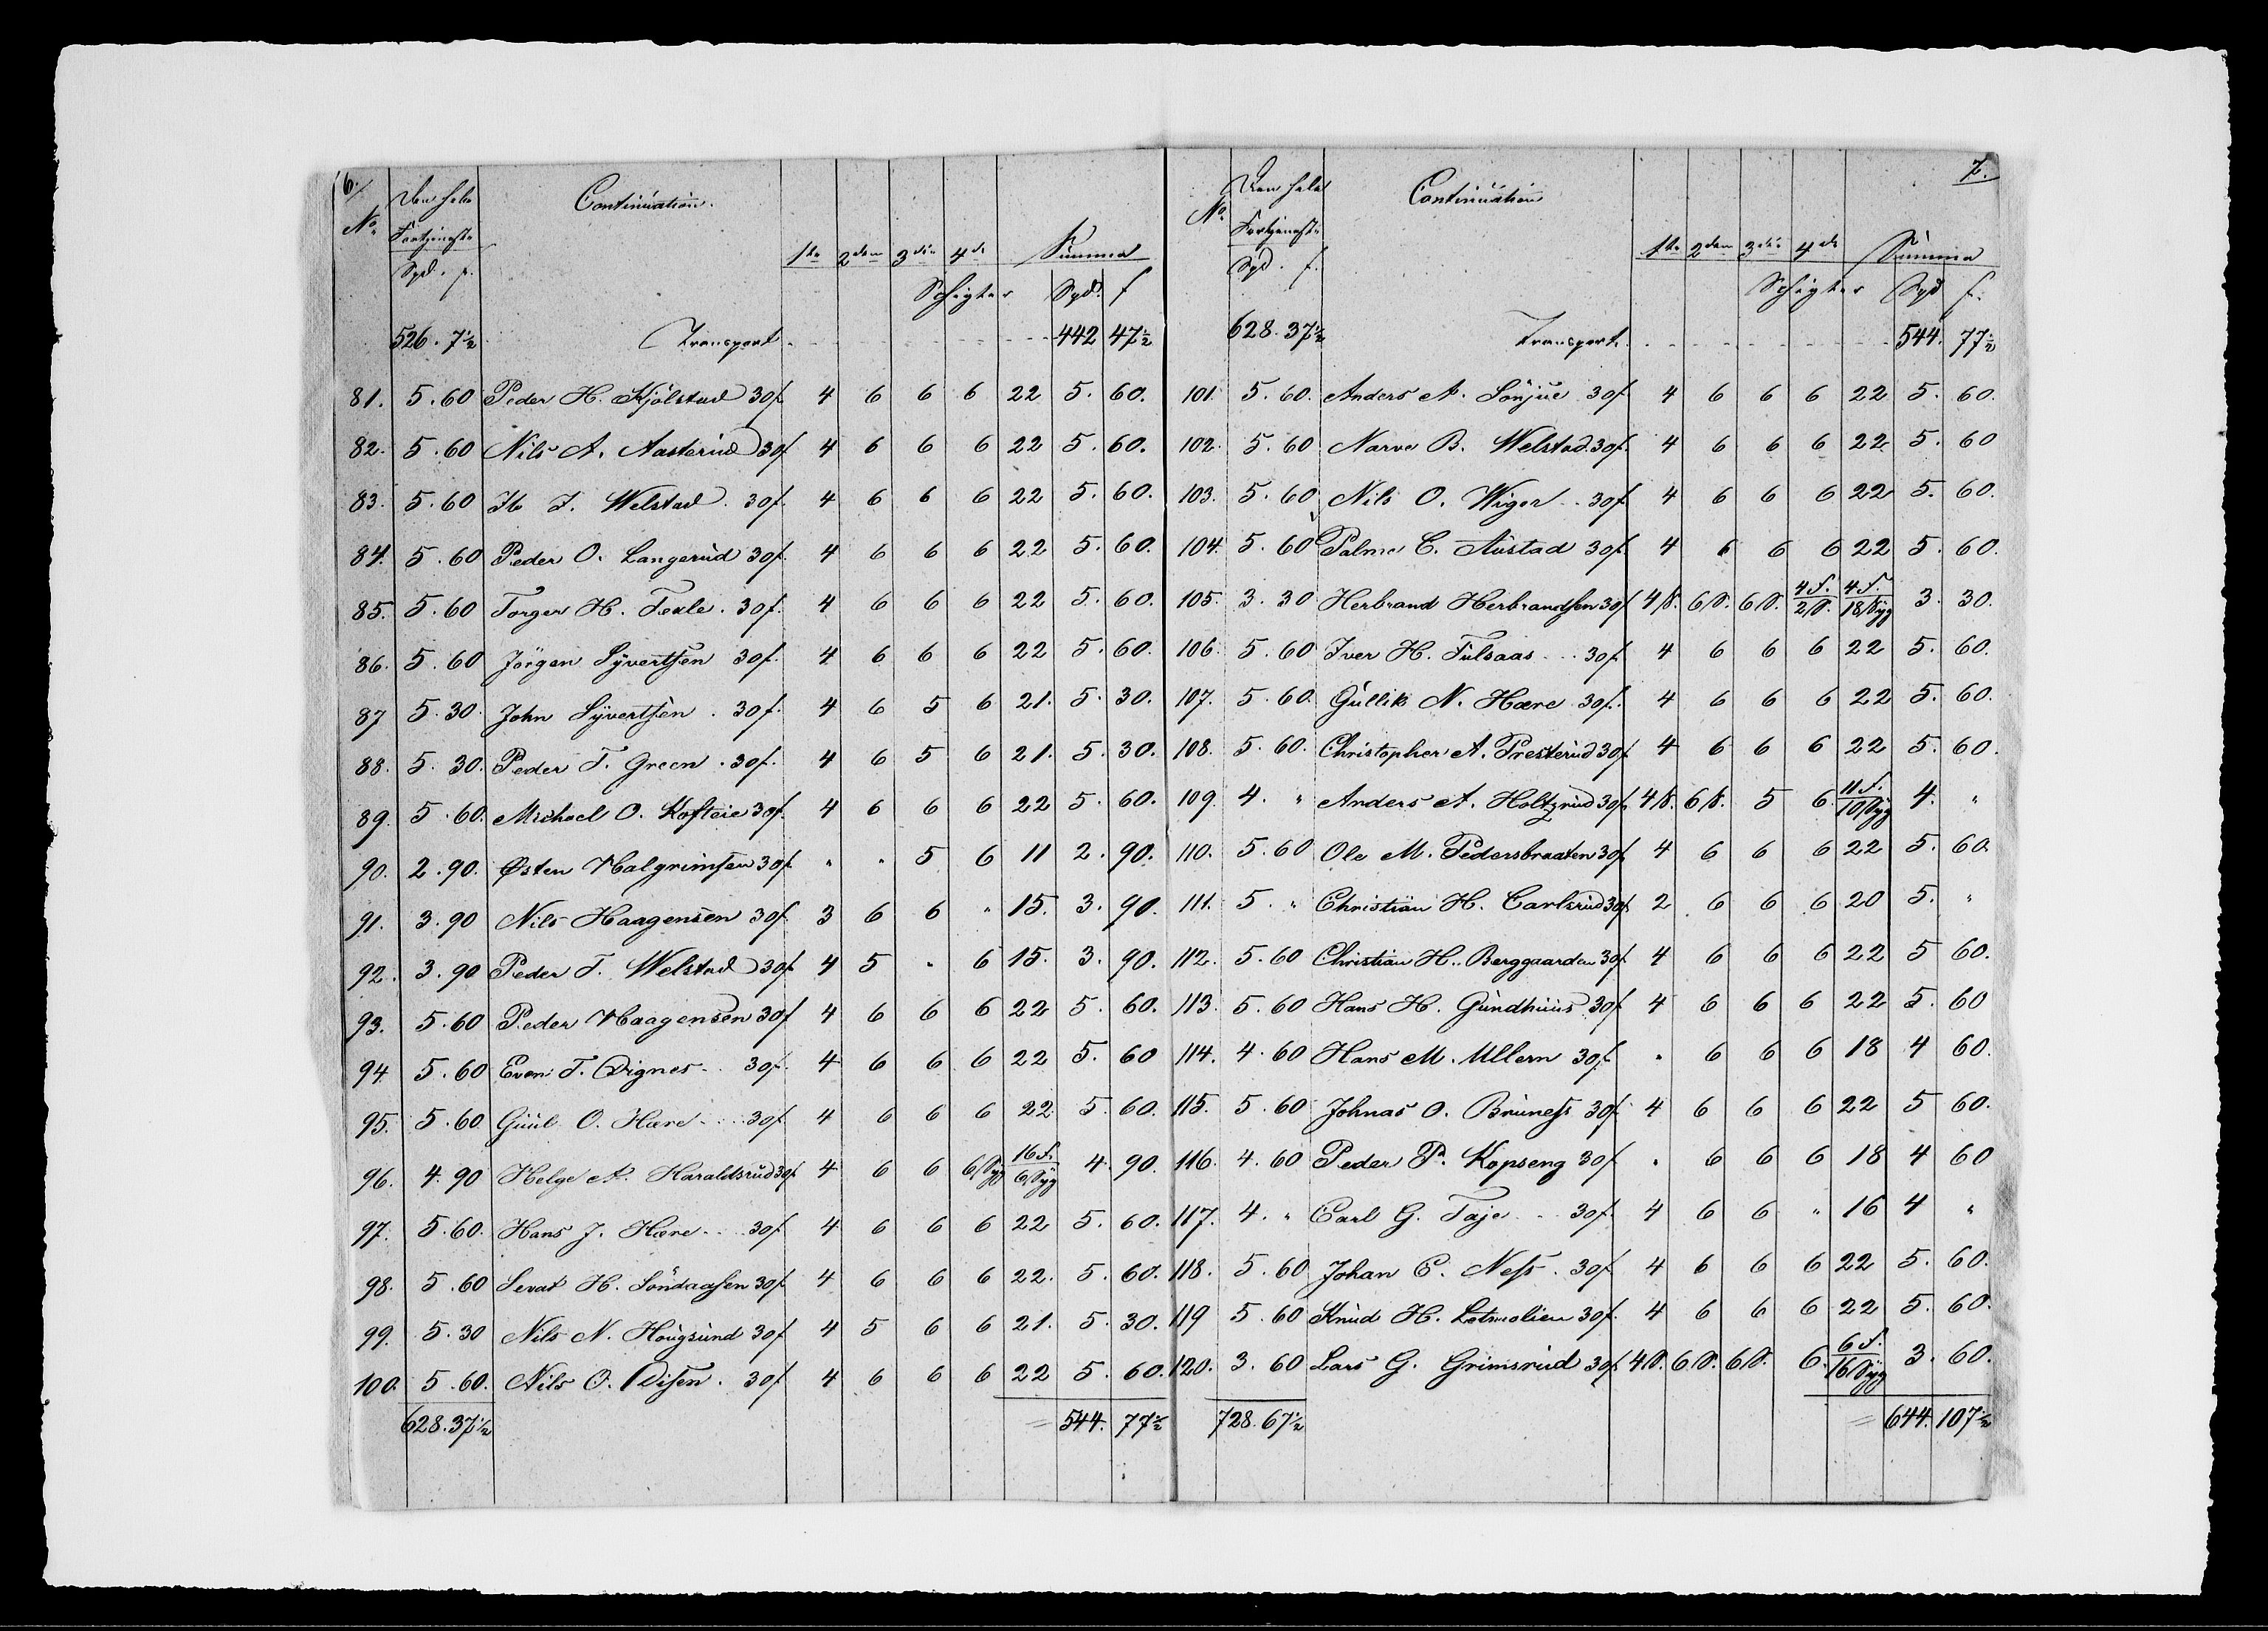 6.
No. Den hele Fortjeneste Continuation. 1te 2den 3die 4de Summa
Spd. f. Schigter Spd. f
526. 7½ Transport 442 47½
81. 5.60 Peder H. Kjölstad 30f. 4 6 6 6 22 5. 60.
82. 5.60 Nils A. Aasterud 30f 4 6 6 6 22 5. 60.
83. 5.60 Ib J. Welstad. 30f. 4 6 6 6 22 5. 60.
84. 5.60 Peder O. Langerud 30f. 4 6 6 6 22 5. 60.
85. 5.60 Torger H. Texle. 30f. 4 6 6 6 22 5. 60.
86. 5.60 Jörgen Syvertsen 30f. 4 6 6 6 22 5. 60.
87 5.30. John Syvertsen. 30f. 4 6 5 6 21. 5. 30.
88. 5. 30. Peder T. Green. 30f. 4 6 5 6 21. 5. 30.
89. 5.60. Michael O. Kofteie 30f. 4 6 6 6 22 5. 60.
90. 2.90. Østen Halgrimsen 30f. " " 5 6 11 2. 90.
91. 3.90 Nils Haagensen 30f 3 6 6 " 15. 3. 90.
92. 3.90 Peder T. Welstad 30f 4 5 " 6 15. 3. 90.
93. 5.60 Peder Haagensen 30f 4 6 6 6 22 5. 60.
94. 5.60 Even T. Vignes 30f. 4 6 6 6 22 5. 60
95. 5.60 Guul O. Hære 30f 4 6 6 6 22 5. 60.
96. 4.90 Helge A. Haraldsrud 30f 4 6 6 6/Syg 16 f./6/Syg 4. 90.
97. 5.60. Hans J. Hære 30f 4 6 6 6 22 5. 60.
98. 5.60 Sevat H. Söndaasen 30f 4 6 6 6 22. 5. 60.
99. 5.30 Nils N. Hougsund 30f 4 5 6 6 21. 5. 30.
100. 5.60. Nils O. Disen. 30f 4 6 6 6 22 5. 60.
628.37½ = 544. 77½
7.
No. Den hele Fortjeneste Continuation 1te 2den 3die 4de Summa
Spd. f. Schigter Spd f.
628. 37½ Transport. 544. 77½
101. 5.60. Anders A. Sönjue 30f 4 6 6 6 22 5. 60.
102. 5.60 Narve B. Welstad. 30f. 4 6 6 6 22 5. 60
103. 5.60 Nils O. Wiger 30f 4 6 6 6 22 5. 60.
104. 5.60 Palme C. Austad 30f. 4 6 6 6 22 5. 60.
105. 3.30 Herbrand Herbrandsen 30f 4/S. 6/S. 6/S. 4 f./2/S. 4 f./18/Syg 3. 30.
106. 5.60 Iver H. Fulsaas 30f. 4 6 6 6 22 5. 60.
107. 5.60. Gullik N. Hære 30f. 4 6 6 6 22 5. 60.
108. 5.60. Christopher A. Presterud 30f 4 6 6 6 22 5. 60.
109. 4. " Anders A. Holtzrud 30f. 4/S. 6/S. 5 6. 11 f./10/Syg 4. "
110. 5.60 Ole M. Pedersbraaten 30f 4 6 6 6 22 5. 60.
111. 5. " Christian H. Carlsrud 30f. 2 6 6 6 20 5. "
112. 5.60 Christian H. Berggaarden 30f 4 6 6 6 22 5 60.
113. 5.60 Hans H. Gundhuus 30f 4 6 6 6 22 5. 60
114. 4.60 Hans M. Ullern 30f. " 6 6 6 18 4 60.
115. 5.60 Johnas O. Bruness 30f. 4 6 6 6 22 5 60.
116. 4.60 Peder P. Kopseng 30f " 6 6 6 18 4 60
117. 4. " Carl G. Taje 30f. 4 6 6 " 16 4 "
118. 5.60 Johan E. Ness. 30f. 4 6 6 6 22 5. 60.
119 5.60 Knud H. Lotmolien 30f. 4 6 6 6 22 5. 60.
120. 3.60 Lars G. Grimsrud 30f. 4/S. 6/S. 6/S. 6. 6 f./16/Syg 3. 60.
728. 67½ = 644. 107½